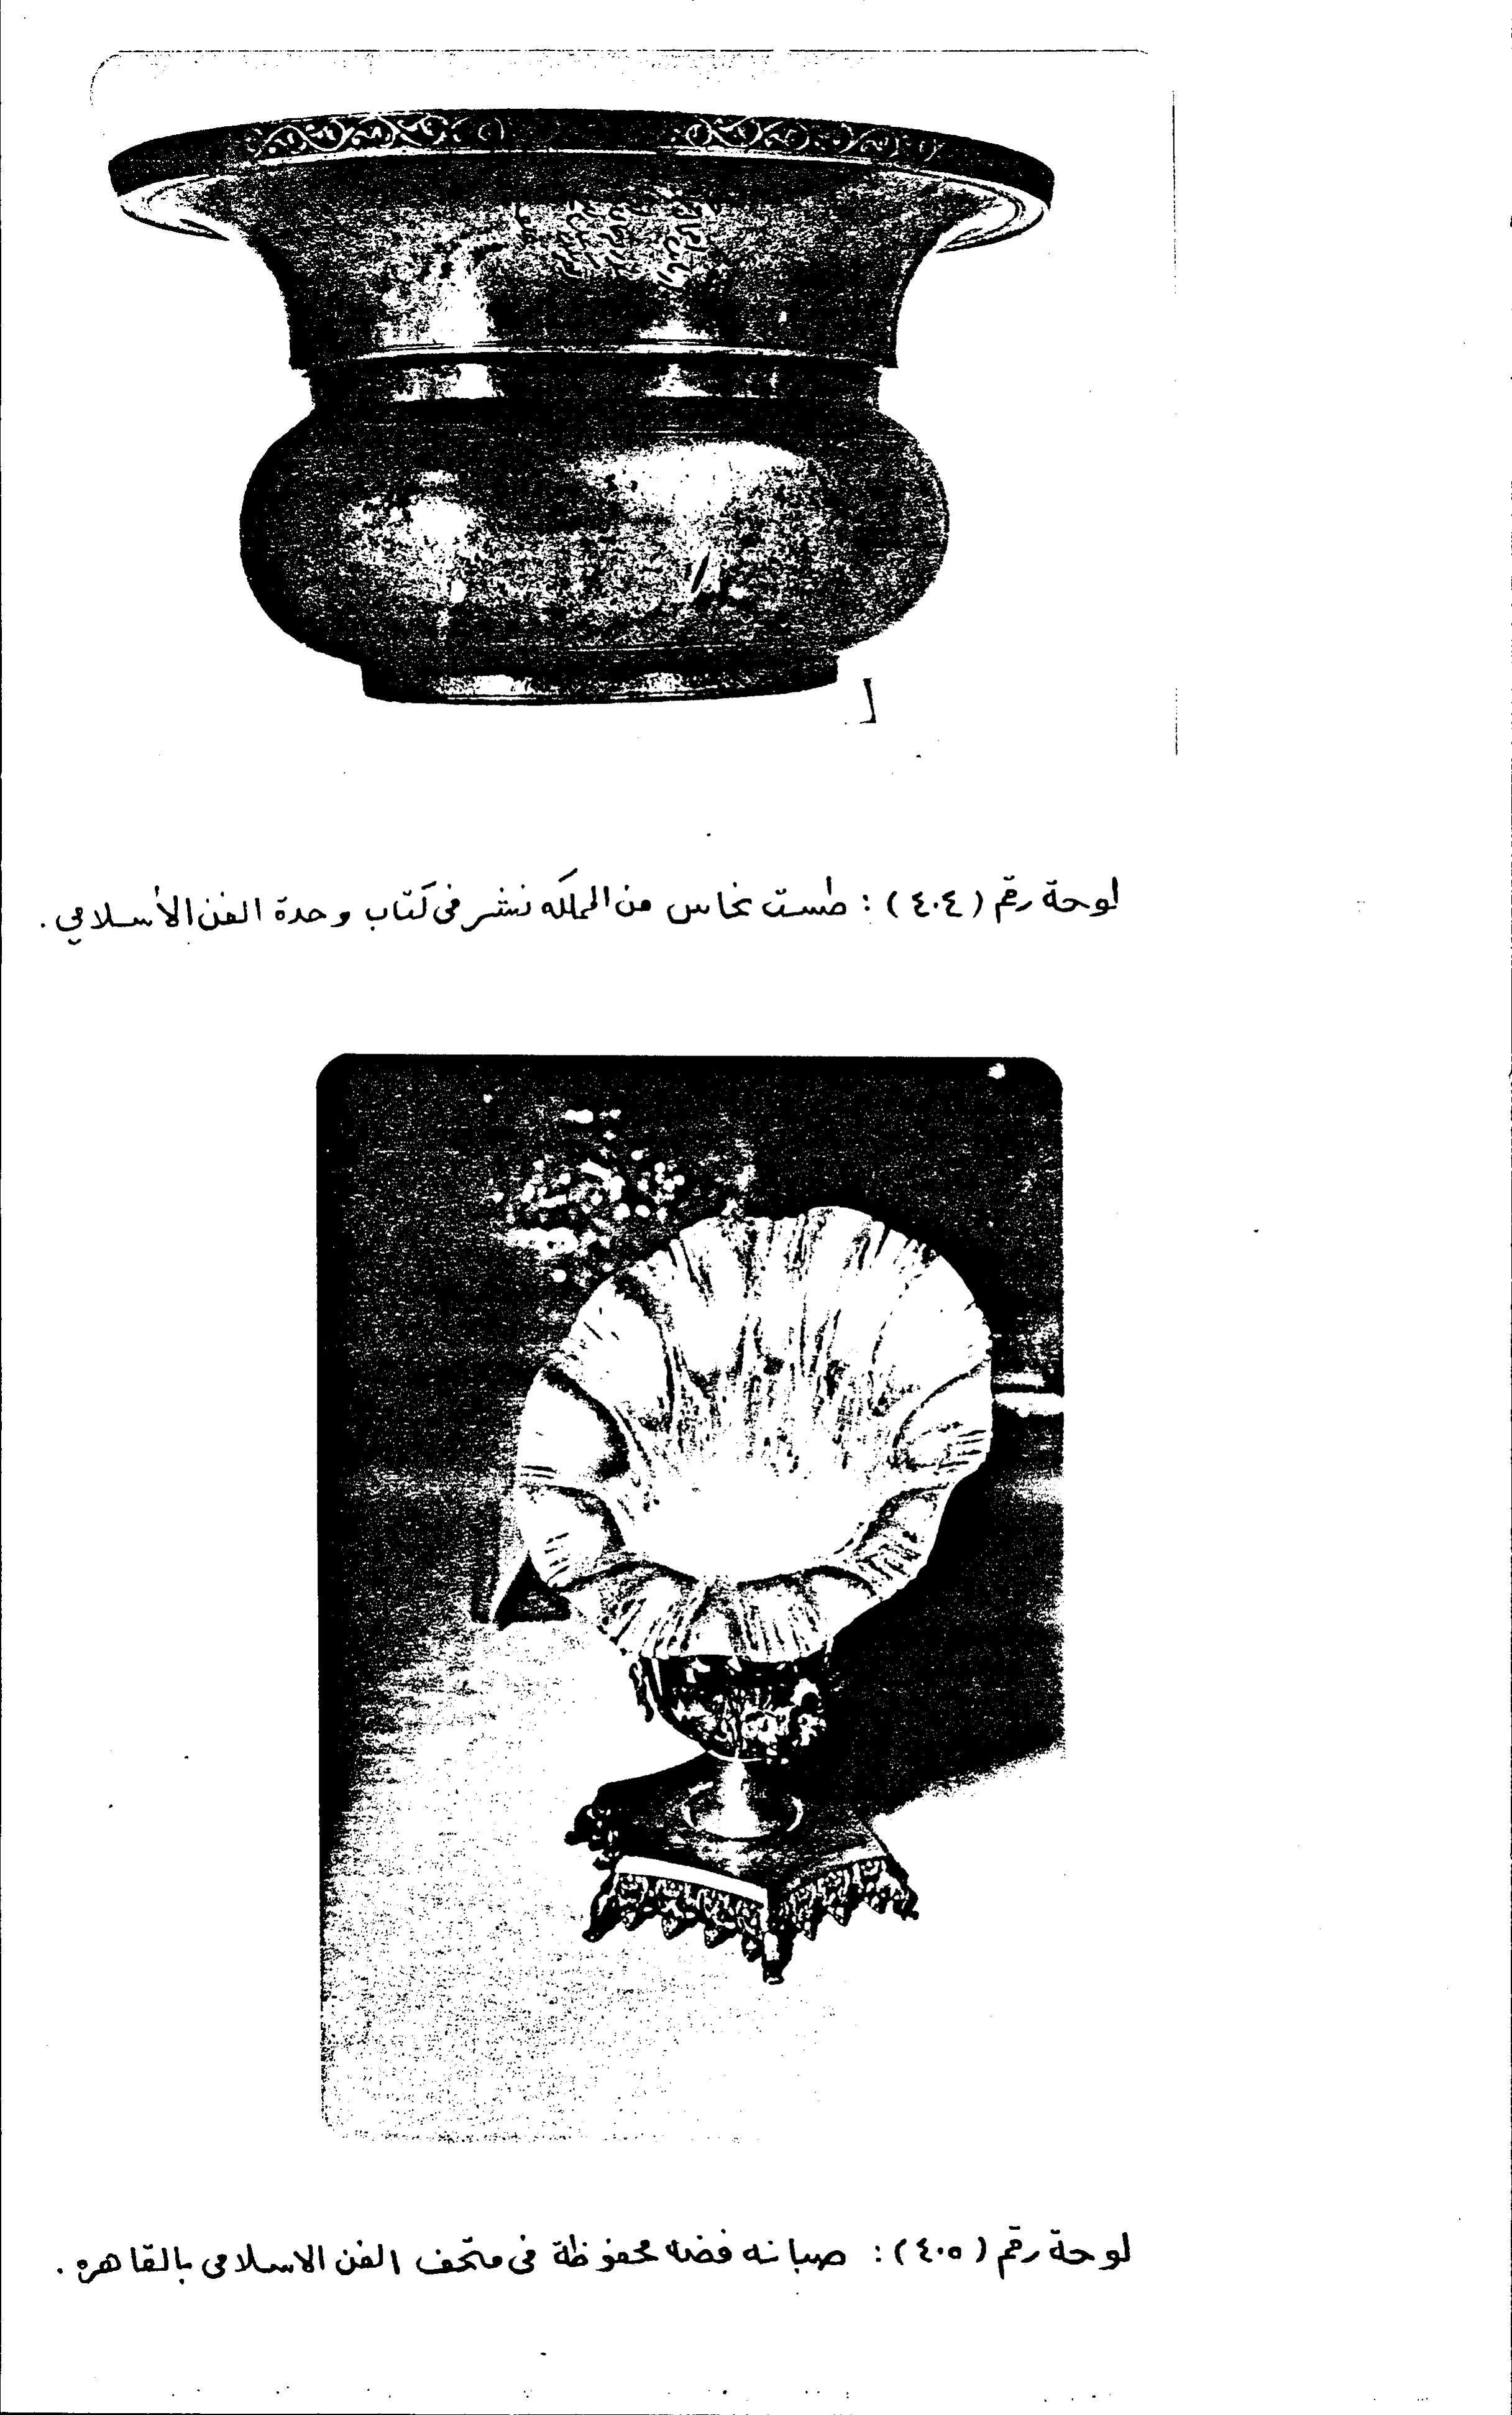 لوحة رقم (٤٠٤) : طست نحاس من المملكه نشر فى كتاب وحدة الفن الأسلامي .
لوحة رقم (٤٠٥) : صبانه فضه محفوظة فى متحف الفن الاسلامى بالقاهره .